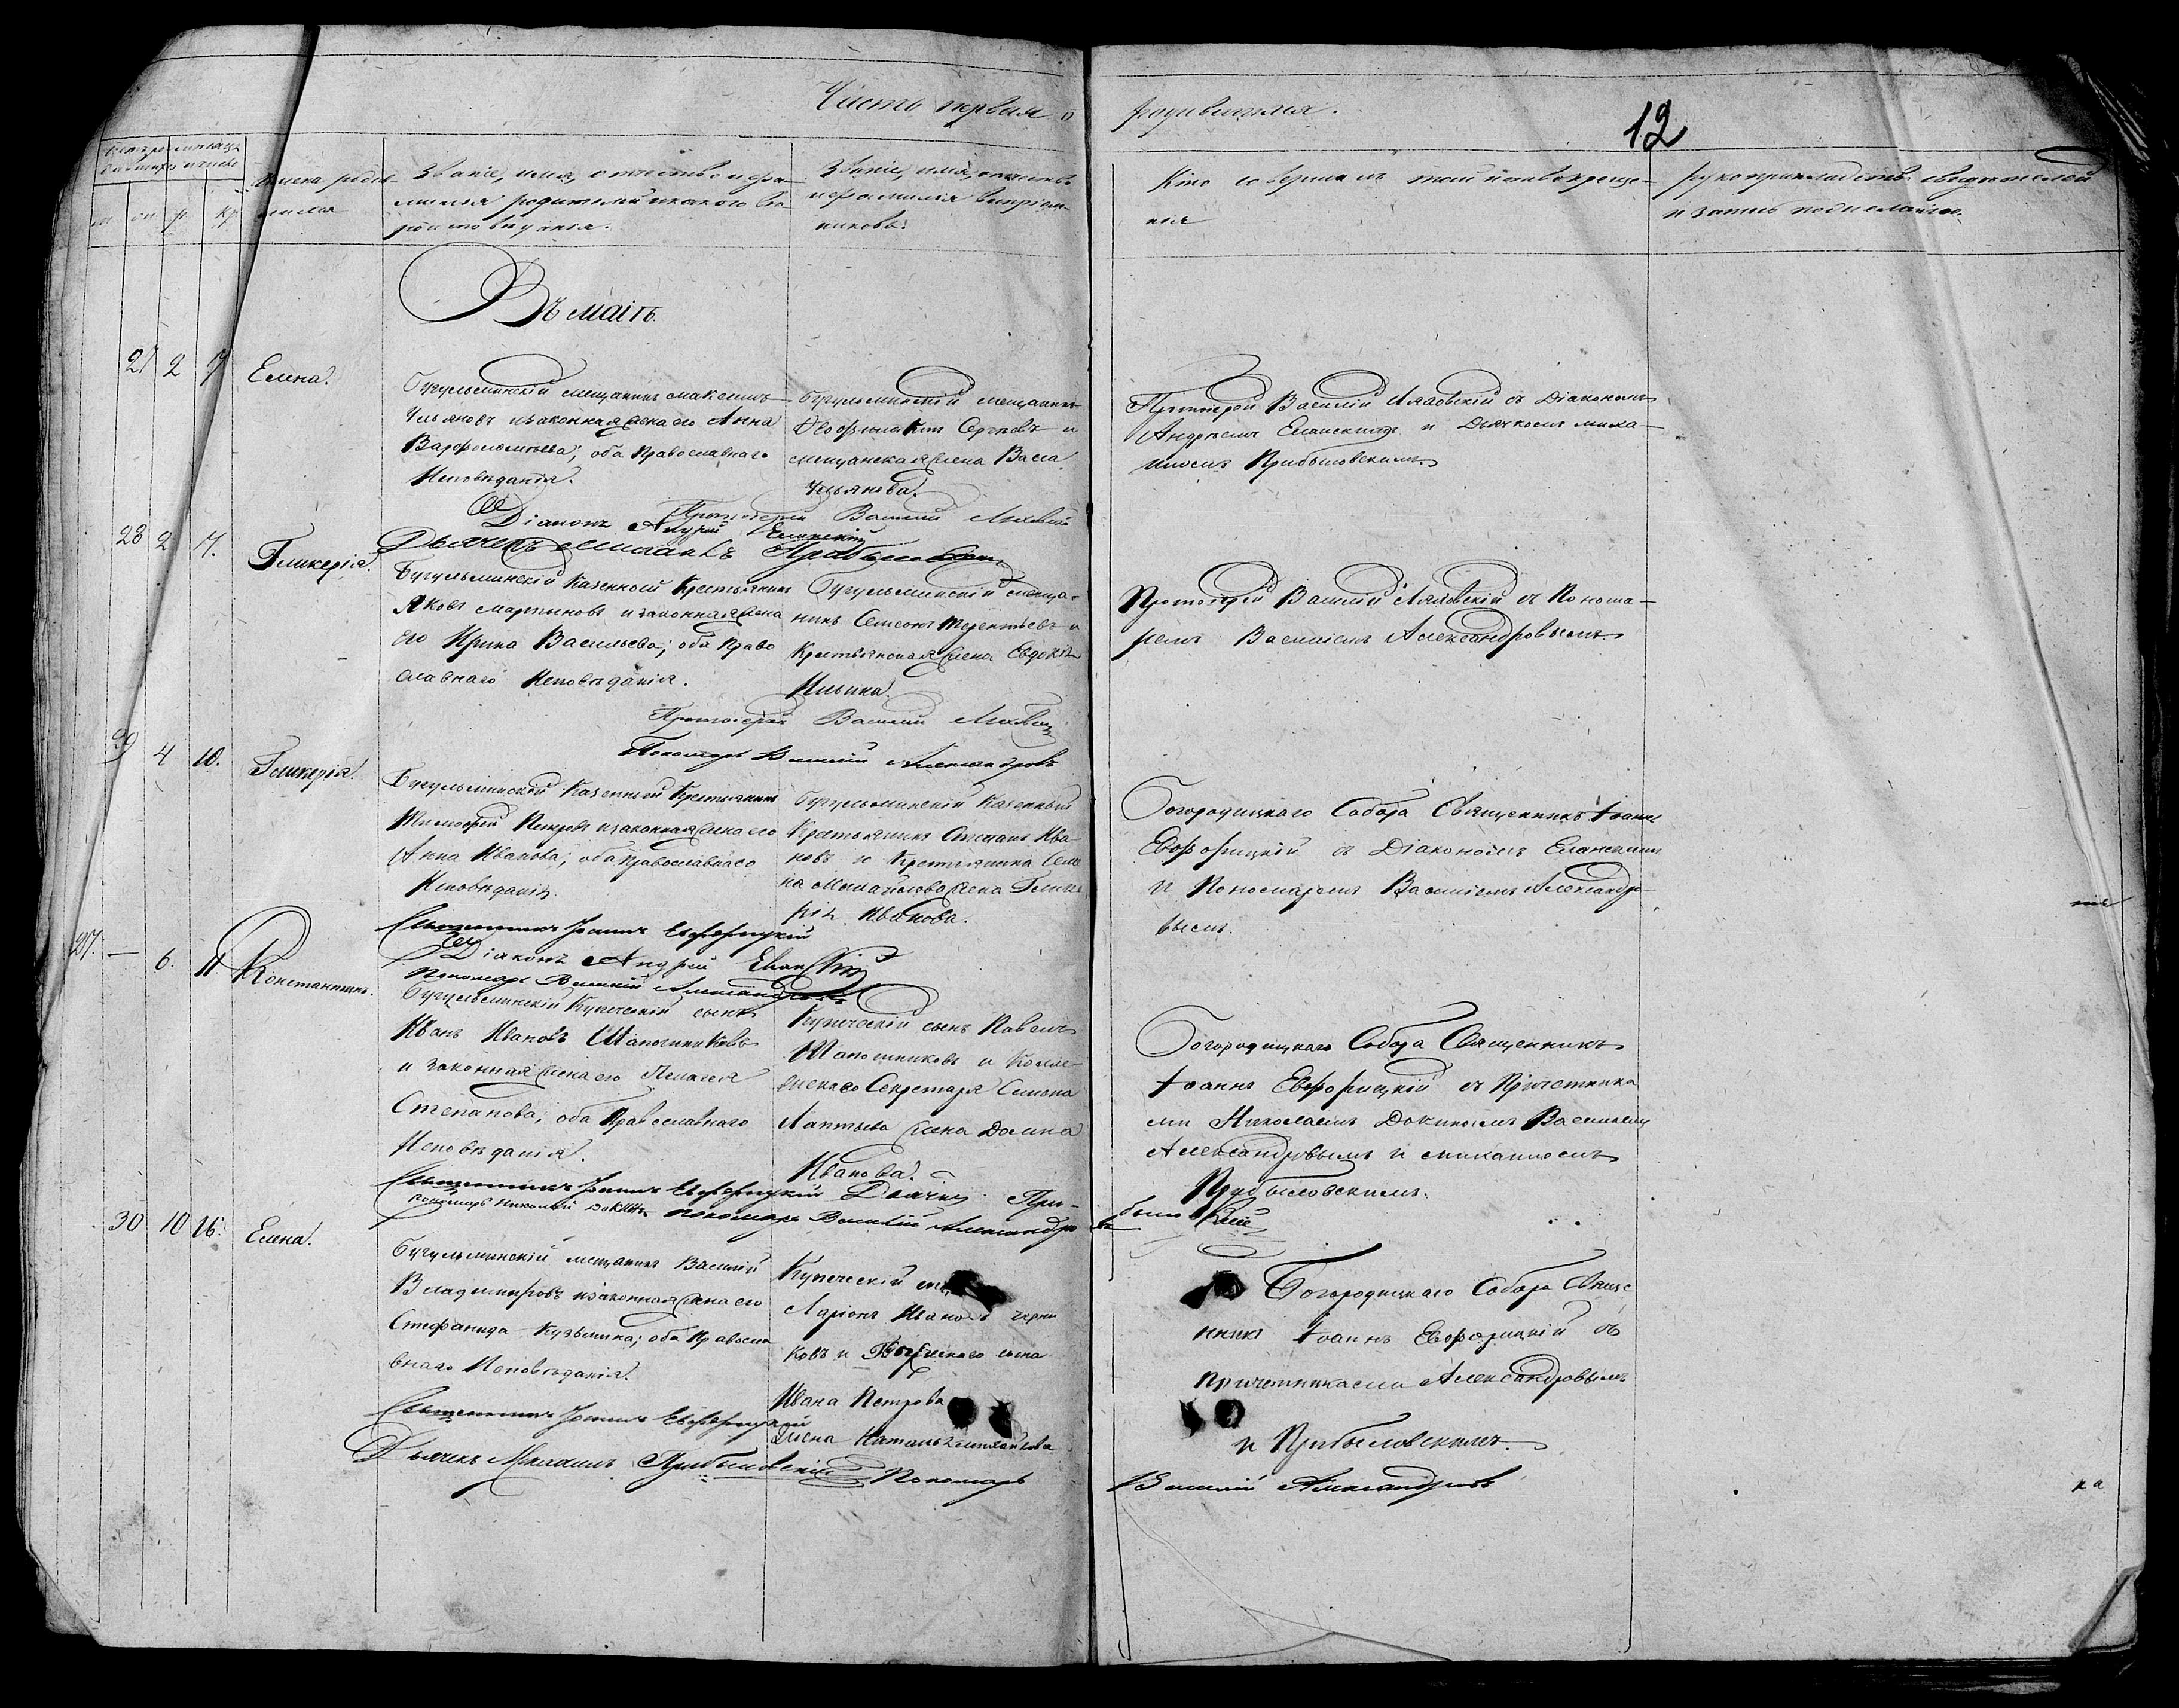 Часть первая о
родившихся.
12
Имена родив-
шихся
Званіе, имя, отчество и фа-
милія родителей и какого вѣ-
роисповѣданія.
Званіе, имя, отчество
и фамилія воспріем-
никовъ.
Кто совершалъ таинство креще-
нія
Рукоприкладство свидѣтелей
и запись по желанію.
Въ маіѣ.
27 2 7 Елена.
Бугульминскій мещанинъ Максимъ
Ульяновъ и законная жена его Анна
Варфоломѣева, оба Православнаго
Исповѣданія.
Бугульминскій мещанинъ
Феофилактъ Сергѣевъ и
мещанская жена Васса
Ульянова.
Протоіерей Василій Люховскій съ Діакономъ
Андреемъ Еланскимъ и Дьячкомъ Миха-
иломъ Прибыловскимъ.
Протоіерей Василій
Діаконъ Андрей Еланскій
Дьячекъ Михаилъ Прибыловскій
28 2 7. Гликерія.
Бугульминскій Казенный Крестьянинъ
Яковъ Мартиновъ и законная жена
его Ирина Васильева; оба Право
славнаго Исповѣданія.
Бугульминскій меща-
нинъ Семеонъ Терентьевъ и
Крестьянская жена Евдокія
Ильина.
Протоіерей Василій съ Понома-
ремъ Василіемъ Александровымъ
Протоіерей Василій
Пономарь Василій Александровъ
29 4 10. Гликерія.
Бугульминскій Казенный Крестьянинъ
Тимофей Петровъ и законная жена его
Анна Иванова; оба православнаго
Исповѣданія.
Бугульминскій Казенный
Крестьянинъ Степанъ Ива
новъ и Крестьянина Семе
на Михайлова жена Глике
рія Иванова.
Богородицкаго Собора Священникъ Іоаннъ
Евфорицкій съ Діакономъ Еланскимъ
и Пономаремъ Василіемъ Александро-
вымъ.
Священникъ Іоаннъ Евфорицкій
Діаконъ Андрей Еланскій
Пономарь Василій Александровъ
27. — 6. 11 Константинъ.
Бугульминскій Купеческій сынъ
Иванъ Ивановъ Шапошниковъ
и законная жена его Пелагея
Степанова; оба Православнаго
Исповѣданія.
Купеческій сынъ Павелъ
Шапошниковъ и Колле
жскаго Секретаря Симона
Лаптева жена Домна
Иванова.
Богородицкаго Собора Священникъ
Іоаннъ Евфорицкій съ Причетника
ми Николаемъ Докинымъ Василіемъ
Александровымъ и Михаиломъ
Прибыловскимъ.
Священникъ Іоаннъ Евфорицкій Дьячекъ При-
Пономарь Николай Докинъ пономарь Василій Александровъ
30 10 16. Елена.
Бугульминскій мещанинъ Василій
Владимировъ и законная жена его
Стефанида Кузьмина; оба Правосла
внаго Исповѣданія.
Купеческій
Ларіонъ Ивановъ Черни
ковъ и сына
Ивана Петрова
жена Наталья Михайлова
Богородицкаго Собора Свяще
нникъ Іоаннъ Евфорицкій съ
причетниками Александровымъ
и Прибыловскимъ.
Священникъ Іоаннъ Евфорицкій
Дьячекъ Михаилъ Прибыловскій Пономарь
Василій Александровъ